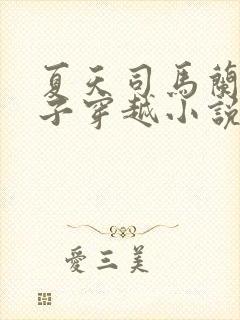 夏天司馬蘭
子穿越小說
愛三美